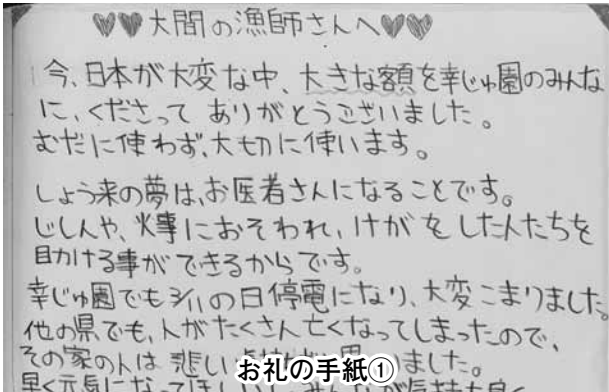 ♥♥大間の漁師さんへ♥♥
今、日本が大変な中、大きな額を幸じゅ園のみんな
に、くださって ありがとうございました。
むだに使わず、大切に使います。
しょう来の夢は、お医者さんになることです。
じしんや、火事におそわれ、けがをした人たちを
助ける事ができるからです。
幸じゅ園でも3/11の日停電になり、大変こまりました。
他の県でも、人がたくさん亡くなってしまったので、
その家の人は悲しい ました。
お礼の手紙①
早く元気になって